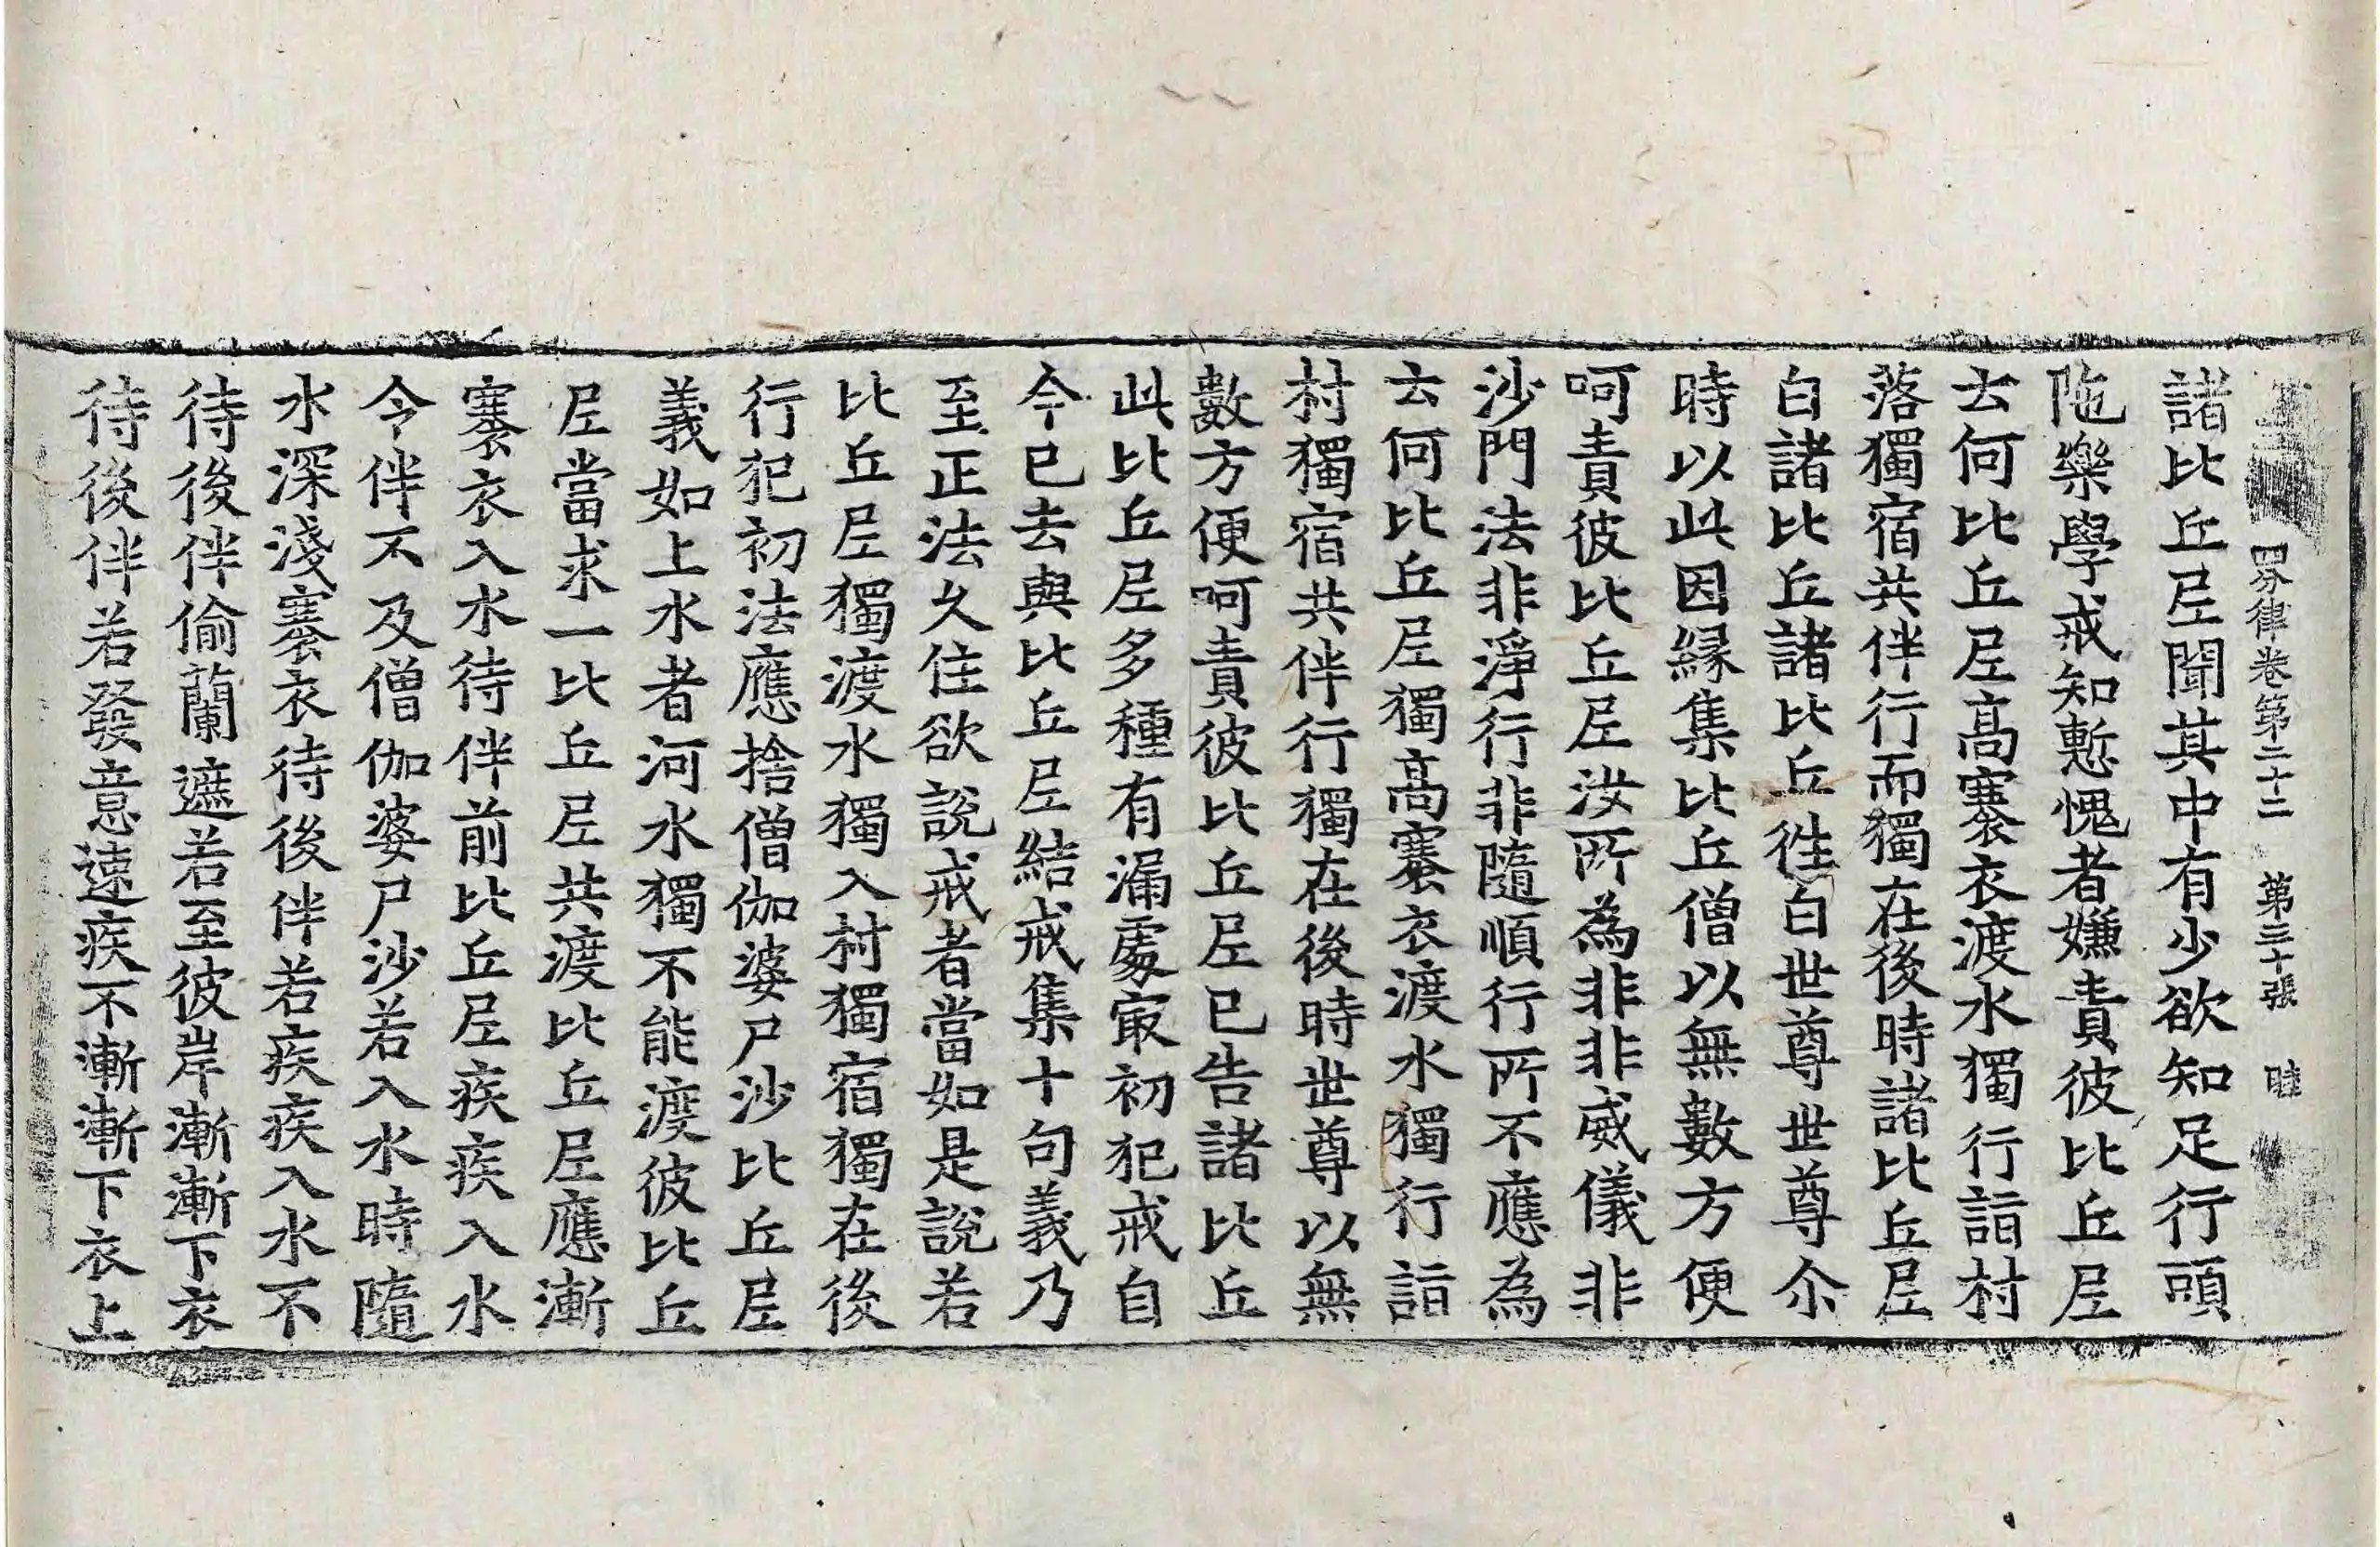 四分律卷第二十二 第三十張 睦
諸比丘尼聞其中有少欲知足行頭
陁樂學戒知慙愧者嫌責彼比丘尼
云何比丘尼高褰衣渡水獨行詣村
落獨宿共伴行而獨在後時諸比丘尼
白諸比丘諸比丘徃白世尊世尊尒
時以此因緣集比丘僧以無數方便
呵責彼比丘尼汝所為非非威儀非
沙門法非淨行非隨順行所不應為
云何比丘尼獨高褰衣渡水獨行詣
村獨宿共伴行獨在後時世尊以無
數方便呵責彼比丘尼已告諸比丘
此比丘尼多種有漏處冣初犯戒自
今已去與比丘尼結戒集十句義乃
至正法久住欲說戒者當如是說若
比丘尼獨渡水獨入村獨宿獨在後
行犯初法應捨僧伽婆尸沙比丘尼
義如上水者河水獨不能渡彼比丘
尼當求一比丘尼共渡比丘尼應漸
褰衣入水待伴前比丘尼疾疾入水
令伴不及僧伽婆尸沙若入水時隨
水深淺褰衣待後伴若疾疾入水不
待後伴偷蘭遮若至彼岸漸漸下衣
待後伴若發意速疾不漸漸下衣上